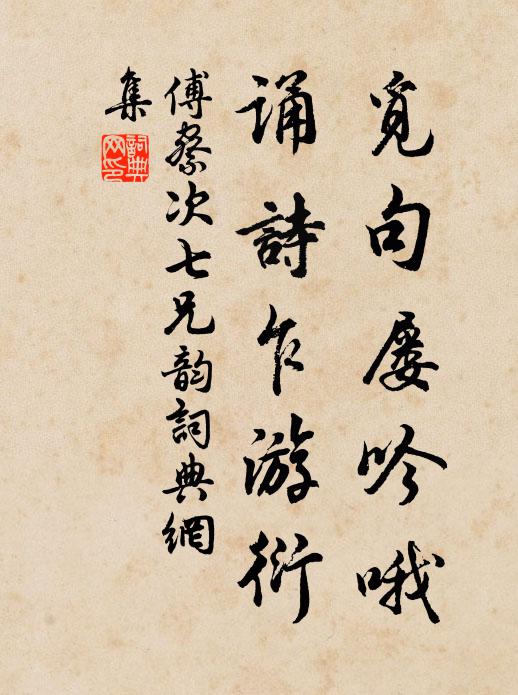 覓句屡吟哦
誦詩乍游衍
傅察次七兄韵詞典網
集
詞典網印